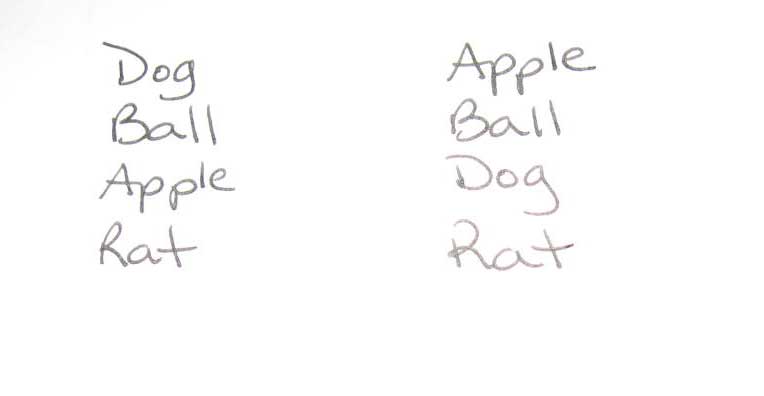 Dog
Ball
Apple
Rat
Apple
Ball
Dog
Rat